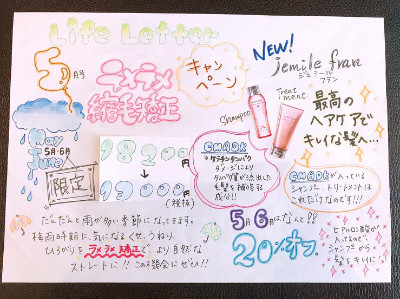 Life Letter
5月号
ラメラメ
縮毛矯正
キャン
ペーン
NEW!
jemile fran
ジェミール
フラン
Shampoo
Treat
ment
最高の
ヘアケアで
キレイな髪へ...
May
5月・6月
June
限定
18200円
↓
13000円
(税抜)
CMADK
ケラチンタンパク
ダメージにより
毛髪を補修する
成分!!
CMADKが入っている
シャンプー、トリートメントは
これだけなのです!!!
だんだんと雨が多い季節になってきます。
梅雨時期に気になるくせ、うねり、
ひろがりをラメラメ矯正でより自然な
ストレートに!! この機会にぜひ!!
5月6月はなんと!!
20%オフ
ヒアルロン酸が
入ってるので
シャンプーから
髪をキレイに!